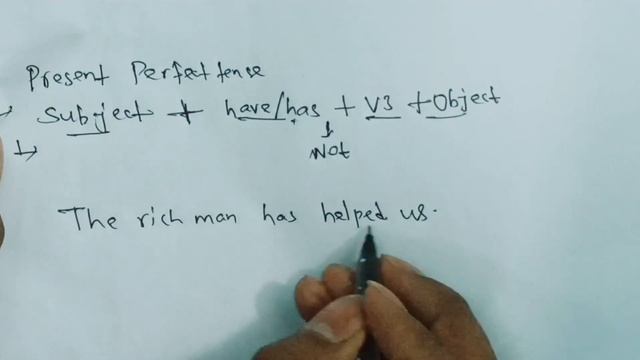 Present Perfect tense
Subject + have/has + V3 + Object
Not
The rich man has helped us.